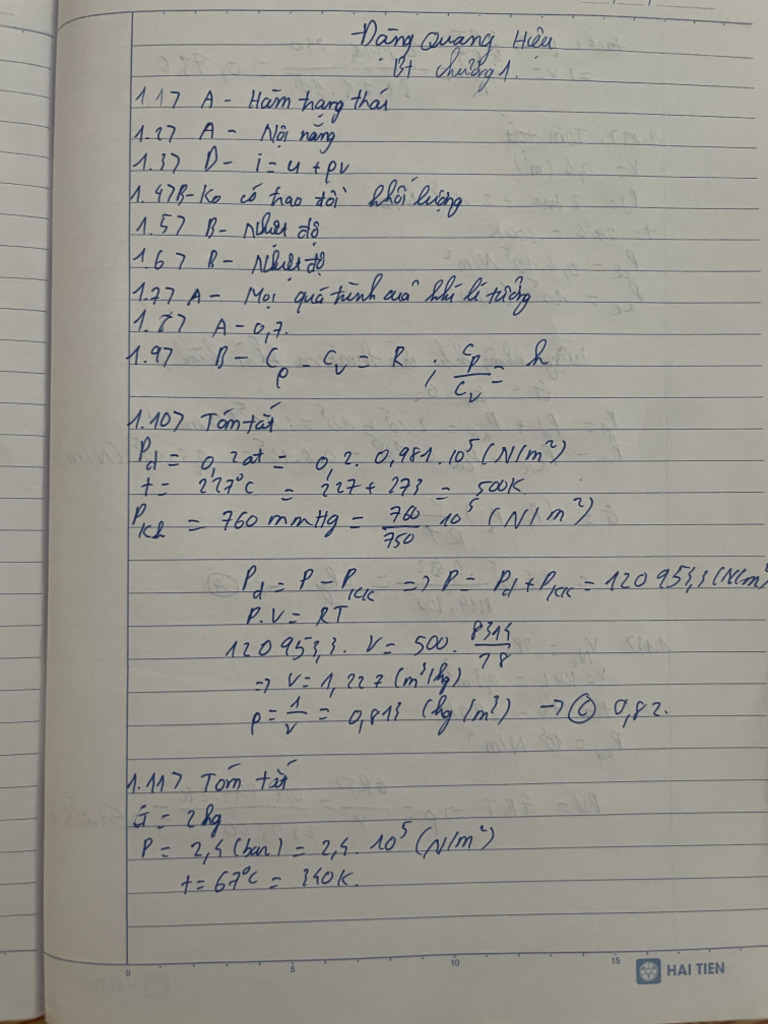 Đặng Quang Hiệu
Bt chương 1.
1.1> A - Hàm trạng thái
1.2> A - Nội năng
1.3> D - i = u + pv
1.4> B - Ko có trao đổi khối lượng
1.5> B - Nhiệt độ
1.6> B - Nhiệt độ
1.7> A - Mọi quá trình của khí lí tưởng
1.8> A - 0,7.
1.9> B - Cp - Cv = R ; Cp/Cv = k
1.10> Tóm tắt
Pd = 0,2at = 0,2. 0,981.10^5 (N/m²)
t = 227°C = 227 + 273 = 500K
Pkk = 760 mmHg = 760/750 . 10^5 (N/m²)
Pd = P - Pkk => P = Pd + Pkk = 120 953,3 (N/m²
P.V = RT
120 953,3. V = 500. 8314/28
=> V = 1,227 (m³/kg)
ρ = 1/v = 0,814 (kg/m³) -> Ⓒ 0,82.
1.11> Tóm tắt
G = 2kg
P = 2,4 (bar) = 2,4. 10^5 (N/m²)
t = 67°C = 340K.
0 5 10 15
HAI TIEN